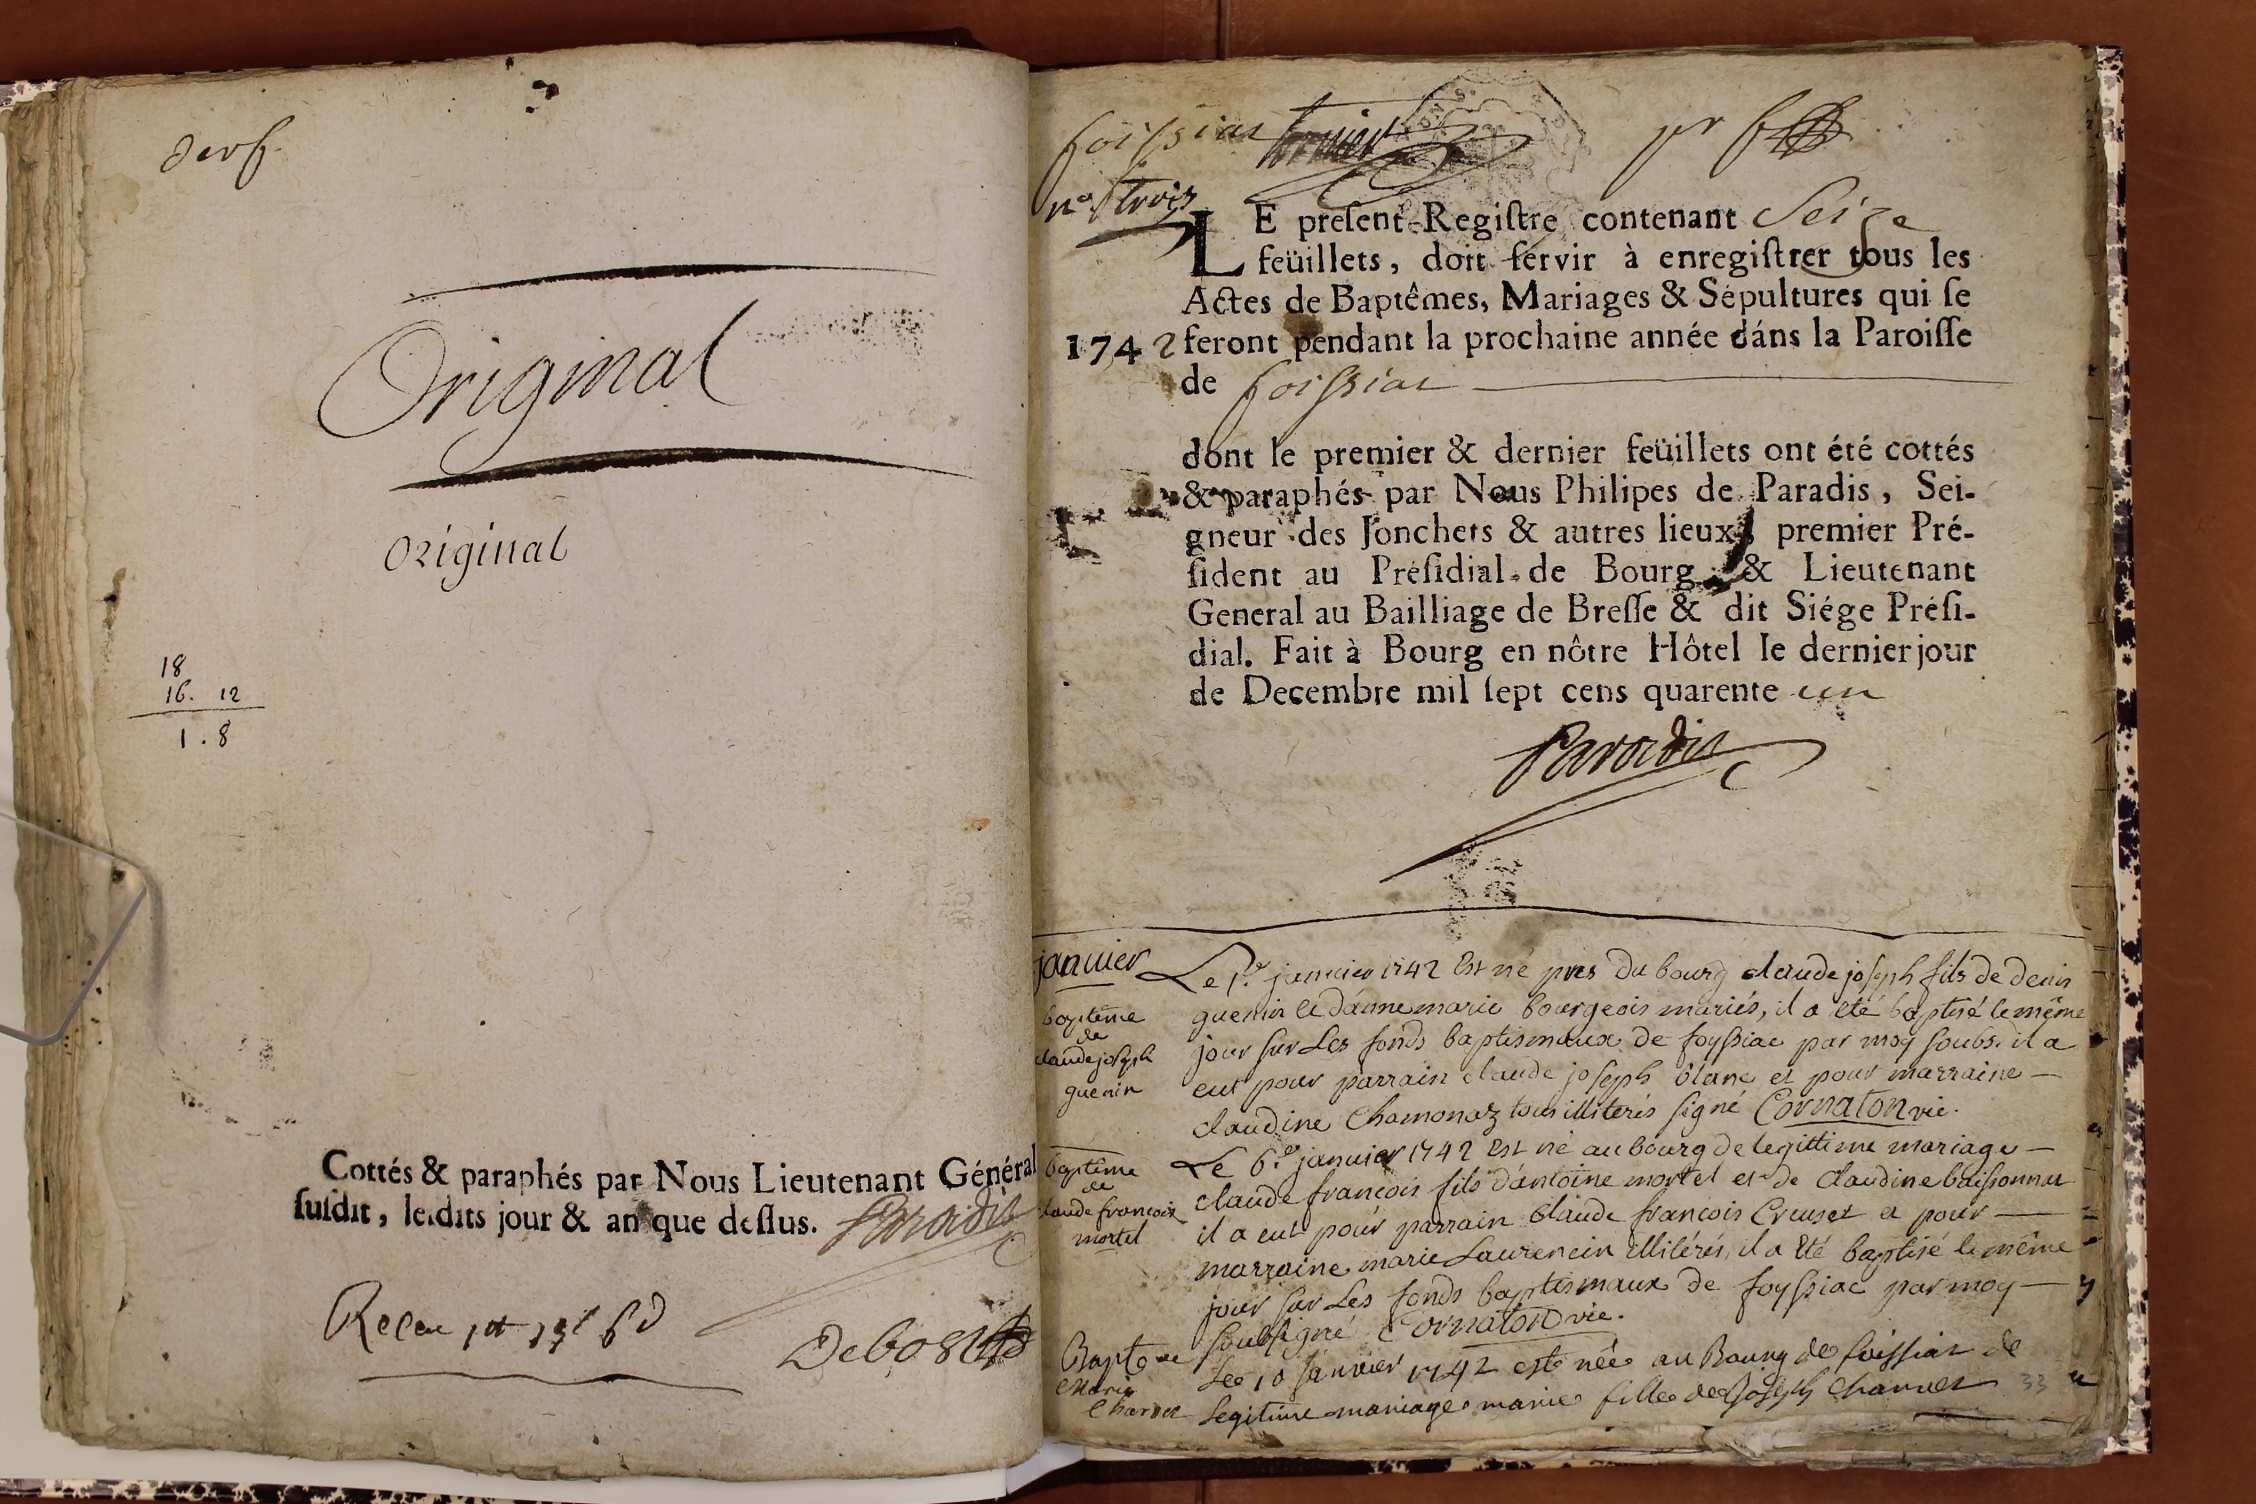 derf.
Original
Original
18
16. 12
1.8
Cottés & paraphés par Nous Lieutenant Général
susdit, lesdits jour & an que dessus. Paradis
foissiat
nº trois
LE present Registre contenant Seize
feüillets, doit servir à enregistrer tous les
Actes de Baptêmes, Mariages & Sépultures qui se
1742 feront pendant la prochaine année dáns la Paroisse
de foissiat
dont le premier & dernier feüillets ont été cottés
& paraphés par Nous Philipes de Paradis, Sei-
gneur des Jonchets & autres lieux, premier Pré-
sident au Présidial de Bourg & Lieutenant
General au Bailliage de Bresse & dit Siége Prési-
dial. Fait à Bourg en nôtre Hôtel le dernier jour
de Decembre mil sept cens quarente un
Paradis
janvier
baptême
de
claude joseph
guenin
Le 1.er janvier 1742 Est né pres du bourg claude joseph fils de denis
guenin et d'anne marie bourgeois mariés, il a été baptisé le même
jour sur Les fonds baptismaux de foyssiac par moy soubs. il a
eut pour parrain claude joseph blanc et pour marraine
claudine Chamonaz tous illiterés signé Cornaton vic.
baptême
de
claude francois
mortel
Le 6.e janvier 1742 Est né au bourg de legittime mariage
claude francois fils d'antoine mortel et de Claudine buissonnat
il a eut pour parrain Claude francois Creuset et pour
marraine marie Laurencin illitérés, il a été baptisé le même
jour sur Les fonds baptismaux de foyssiac par moy
soubsigné Cornaton vic.
Bapteme
Marie
Charvet
Le 10 Janvier 1742 este née au Bourg de foissiat de
Legitime mariage marie fille de Joseph Charvet
33